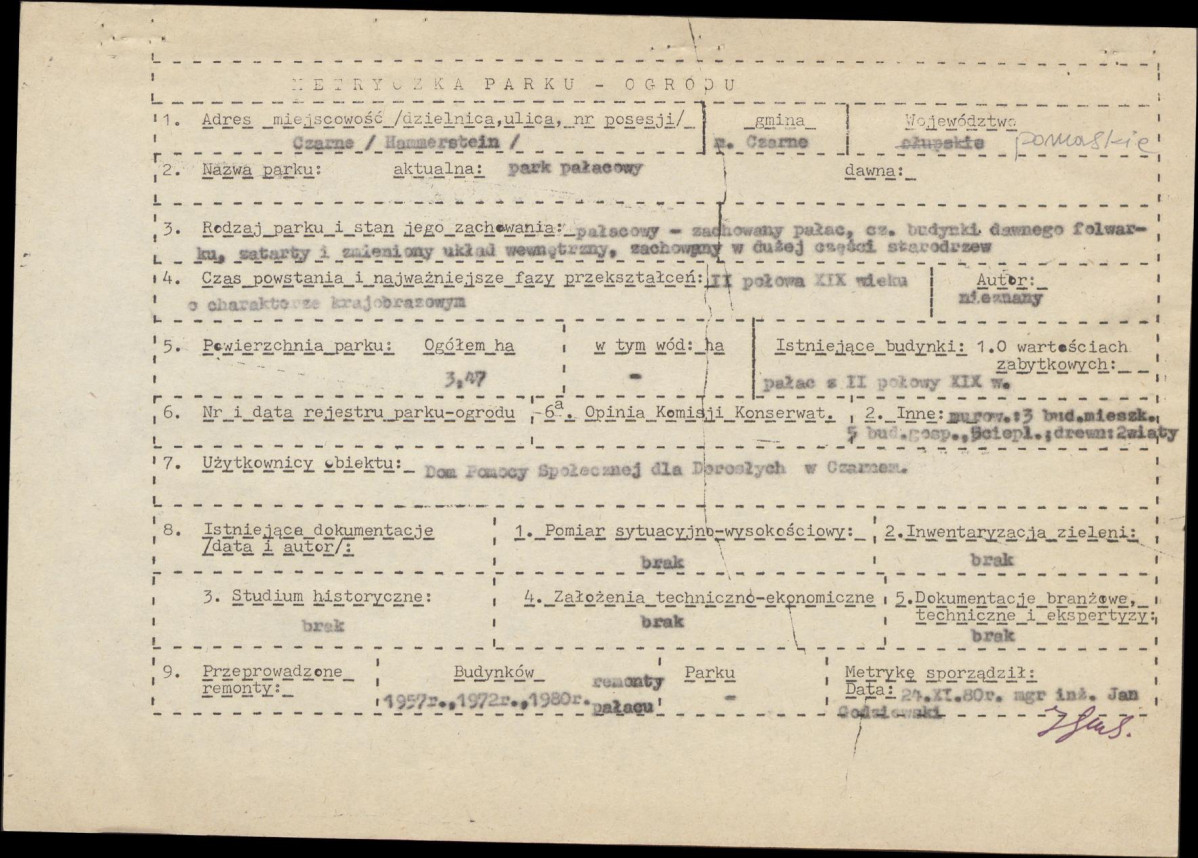 METRYCZKA PARKU - OGRODU
1. Adres miejscowość /dzielnica,ulica, nr posesji/ gmina Województwo
Czarne / Hammerstein / m. Czarne słupskie pomorskie
2. Nazwa parku: aktualna: park pałacowy dawna:
3. Rodzaj parku i stan jego zachowania: pałacowy - zachowany pałac, cz. budynki dawnego folwar-
ku, zatarty i zmieniony układ wewnętrzny, zachowany w dużej części starodrzew
4. Czas powstania i najważniejsze fazy przekształceń: II połowa XIX wieku Autor:
o charakterze krajobrazowym nieznany
5. Powierzchnia parku: Ogółem ha w tym wód: ha Istniejące budynki: 1.O wartościach
zabytkowych:
3,47 - pałac z II połowy XIX w.
6. Nr i data rejestru parku-ogrodu 6a. Opinia Komisji Konserwat. 2. Inne: murow.:3 bud.mieszk.
5 bud.gosp., 5ciepl.;drewn:2wiaty
7. Użytkownicy obiektu: Dom Pomocy Społecznej dla Dorosłych w Czarnem.
8. Istniejąca dokumentacje 1. Pomiar sytuacyjno-wysokościowy: 2.Inwentaryzacja zieleni:
/data i autor/:
brak brak
3. Studium historyczne: 4. Założenia techniczno-ekonomiczne 5.Dokumentacje branżowe,
techniczne i ekspertyzy:
brak brak brak
9. Przeprowadzone Budynków Parku Metrykę sporządził:
remonty: remonty Data: 24.XI.80r. mgr inż. Jan
1957r.,1972r.,1980r. pałacu - Godziewski